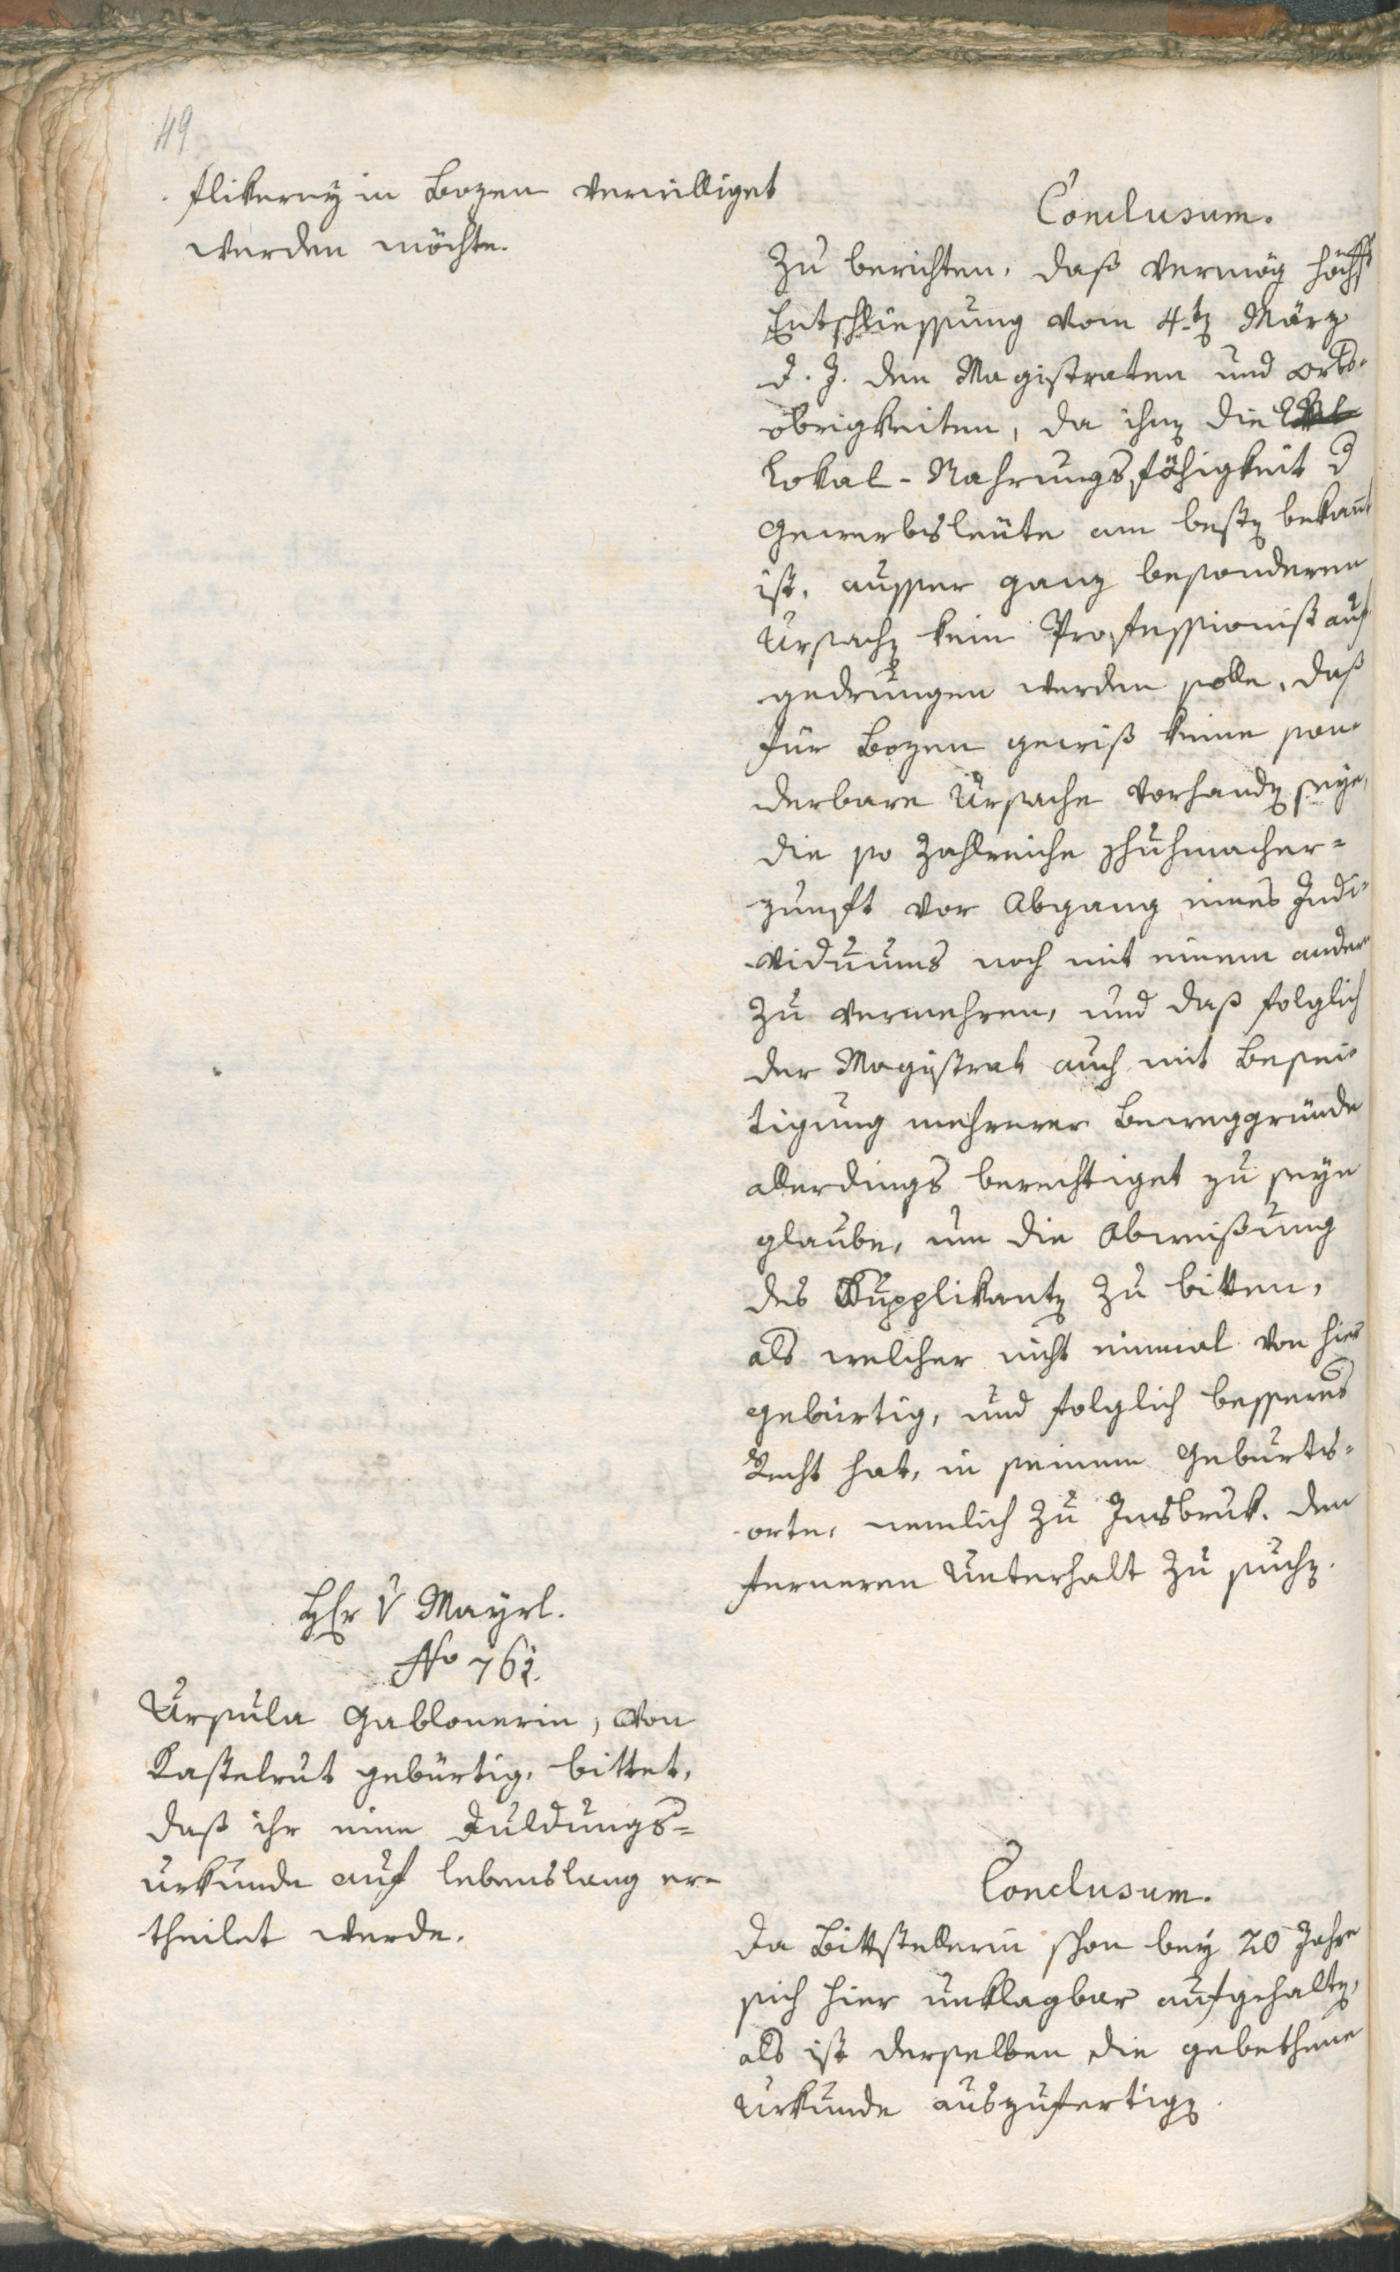 49
flikerey in Bozen verwilliget
werden möchte.
Conclusum.
Zu berichten, daß vermög höchst
Entschliessung vom 4. März
d. J. den Magistraten und Orts-
obrigkeiten, da ihnen die
Lokal-Nahrungsfähigkeit d
Gewerbsleüte am besten bekannt
ist, ausser ganz besonderen
Ursachen kein Professionist auf
gedrungen werden solle, daß
für Bozen gewiß keine son-
derbare Ursache vorhanden seye,
die so zahlreiche Schuhmacher=
zunft vor Abgang eines Indi-
viduums noch mit einem andern
zu vermehren, und daß folglich
der Magistrat auch mit Besei-
tigung mehrerer Beweggründe
allerdings berechtiget zu seyn
glaube, um die Abweißung
des Supplikanten zu bitten,
als welcher nicht einmal von hier
gebürtig, und folglich besseres
Recht hat, in seinem Geburts=
orte, nemlich zu Insbruk, den
ferneren Unterhalt zu suchen.
Hr v Mayrl.
No 762.
Ursula Gablonerin, von
Kastelrut gebürtig, bittet,
daß ihr eine Duldungs=
urkunde auf lebenslang er-
theilet werde.
Conclusum.
Da Bittstellerin schon bey 20 Jahre
sich hier unklagbar aufgehalten,
als ist derselben die gebethene
Urkunde auszufertigen.